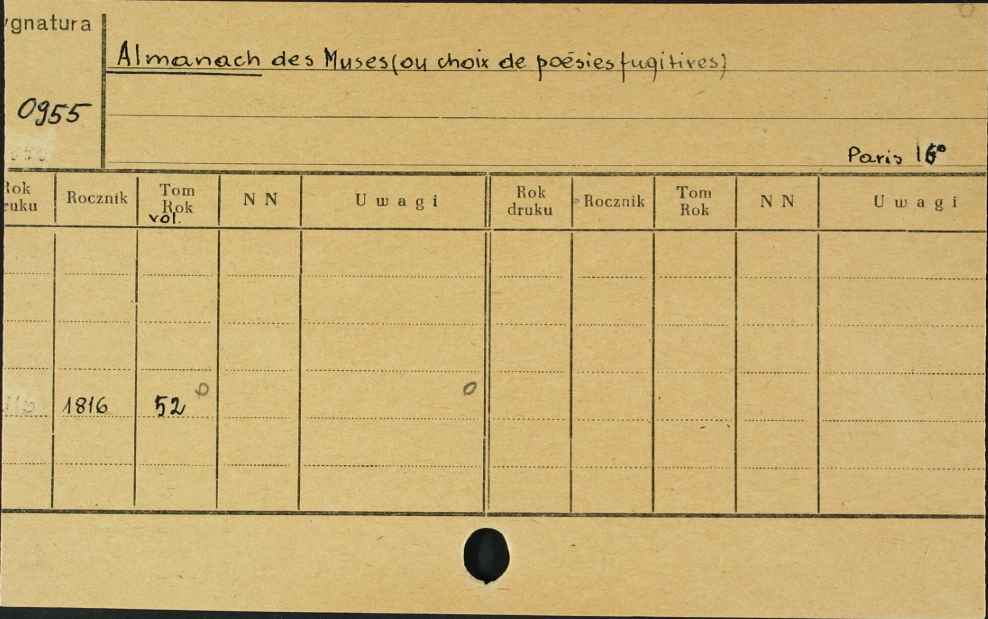 ygnatura
Almanach des Muses (ou choix de poésies fugitives)
0955
Paris 16°
Rok druku Rocznik Tom Rok vol. NN Uwagi Rok druku Rocznik Tom Rok NN Uwagi
1816 52